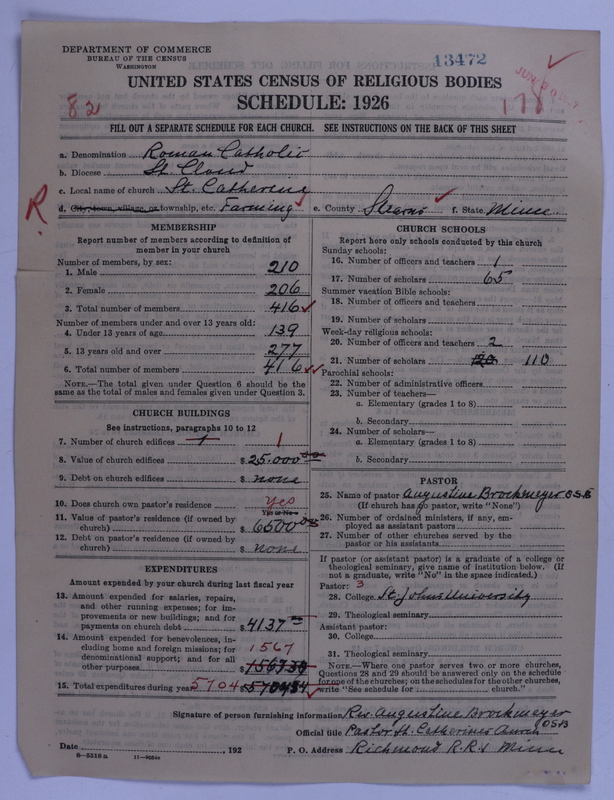 DEPARTMENT OF COMMERCE
BUREAU OF THE CENSUS
WASHINGTON
13472
UNITED STATES CENSUS OF RELIGIOUS BODIES
SCHEDULE: 1926
82
178
FILL OUT A SEPARATE SCHEDULE FOR EACH CHURCH. SEE INSTRUCTIONS ON THE BACK OF THIS SHEET
a. Denomination Roman Catholic
b. Diocese St. Cloud
c. Local name of church St. Catherine
R
d. City, town, village, or township, etc. Farming e. County Stearns f. State Minn
MEMBERSHIP
Report number of members according to definition of
member in your church
Number of members, by sex:
1. Male 210
2. Female 206
3. Total number of members 416
Number of members under and over 13 years old:
4. Under 13 years of age 139
5. 13 years old and over 277
6. Total number of members 416
NOTE.—The total given under Question 6 should be the
same as the total of males and females given under Question 3.
CHURCH BUILDINGS
See instructions, paragraphs 10 to 12
7. Number of church edifices 1 1
8. Value of church edifices $ 25.000
9. Debt on church edifices $ none
10. Does church own pastor's residence yes
Yes or No
11. Value of pastor's residence (if owned by
church) $ 6500
12. Debt on pastor's residence (if owned by
church) $ none
EXPENDITURES
Amount expended by your church during last fiscal year
13. Amount expended for salaries, repairs,
and other running expenses; for im-
provements or new buildings; and for
payments on church debt $ 4137
14. Amount expended for benevolences, in-
cluding home and foreign missions; for
denominational support; and for all
other purposes 1567 $
15. Total expenditures during year 5704 $
CHURCH SCHOOLS
Report here only schools conducted by this church
Sunday schools:
16. Number of officers and teachers 1
17. Number of scholars 65
Summer vacation Bible schools:
18. Number of officers and teachers
19. Number of scholars
Week-day religious schools:
20. Number of officers and teachers 2
21. Number of scholars 110
Parochial schools:
22. Number of administrative officers
23. Number of teachers—
a. Elementary (grades 1 to 8)
b. Secondary
24. Number of scholars—
a. Elementary (grades 1 to 8)
b. Secondary
PASTOR
25. Name of pastor Augustine Brockmeyer O.S.B
(If church has no pastor, write "None")
26. Number of ordained ministers, if any, em-
ployed as assistant pastors
27. Number of other churches served by the
pastor or his assistants
If pastor (or assistant pastor) is a graduate of a college or
theological seminary, give name of institution below. (If
not a graduate, write "No" in the space indicated.)
Pastor: 3
28. College St. Johns University
29. Theological seminary
Assistant pastor:
30. College
31. Theological seminary
NOTE.—Where one pastor serves two or more churches,
Questions 28 and 29 should be answered only on the schedule
for one of the churches; on the schedules for the other churches,
write "See schedule for church."
Signature of person furnishing information Rev. Augustine Brockmeyer
OSB
Official title Pastor St. Catherines Church
Date , 192 P. O. Address Richmond R.R.1 Minn
8—5518a